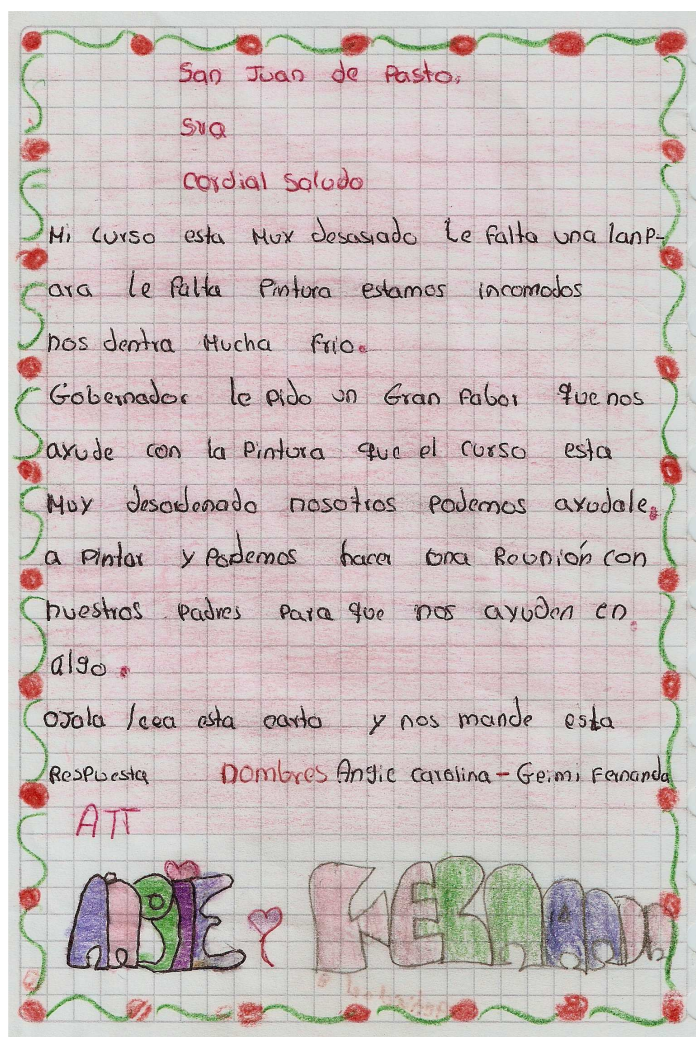 San Juan de Pasto.
Sra
Cordial Saludo
Mi curso esta Muy desasiado Le falta una lanp-
ara le falta Pintura estamos incomodos
nos dentra Mucha frio.
Gobernador le pido un Gran fabor que nos
ayude con la Pintura que el curso esta
Muy desordenado nosotros podemos ayudale.
a Pintar y Podemos hacer una Reunión con
nuestros padres para que nos ayuden en.
algo.
ojala leea esta carta y nos mande esta
Respuesta nombres Angie carolina - Geimi Fernanda
ATT
ANGIE FERNANDA